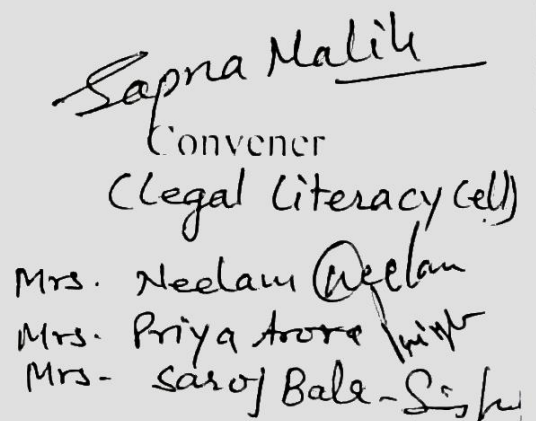 Sapna Malik
Convener
(Legal Literacy Cell)
Mrs. Neelam Neelam
Mrs. Priya Arora
Mrs- Saroj Bala -